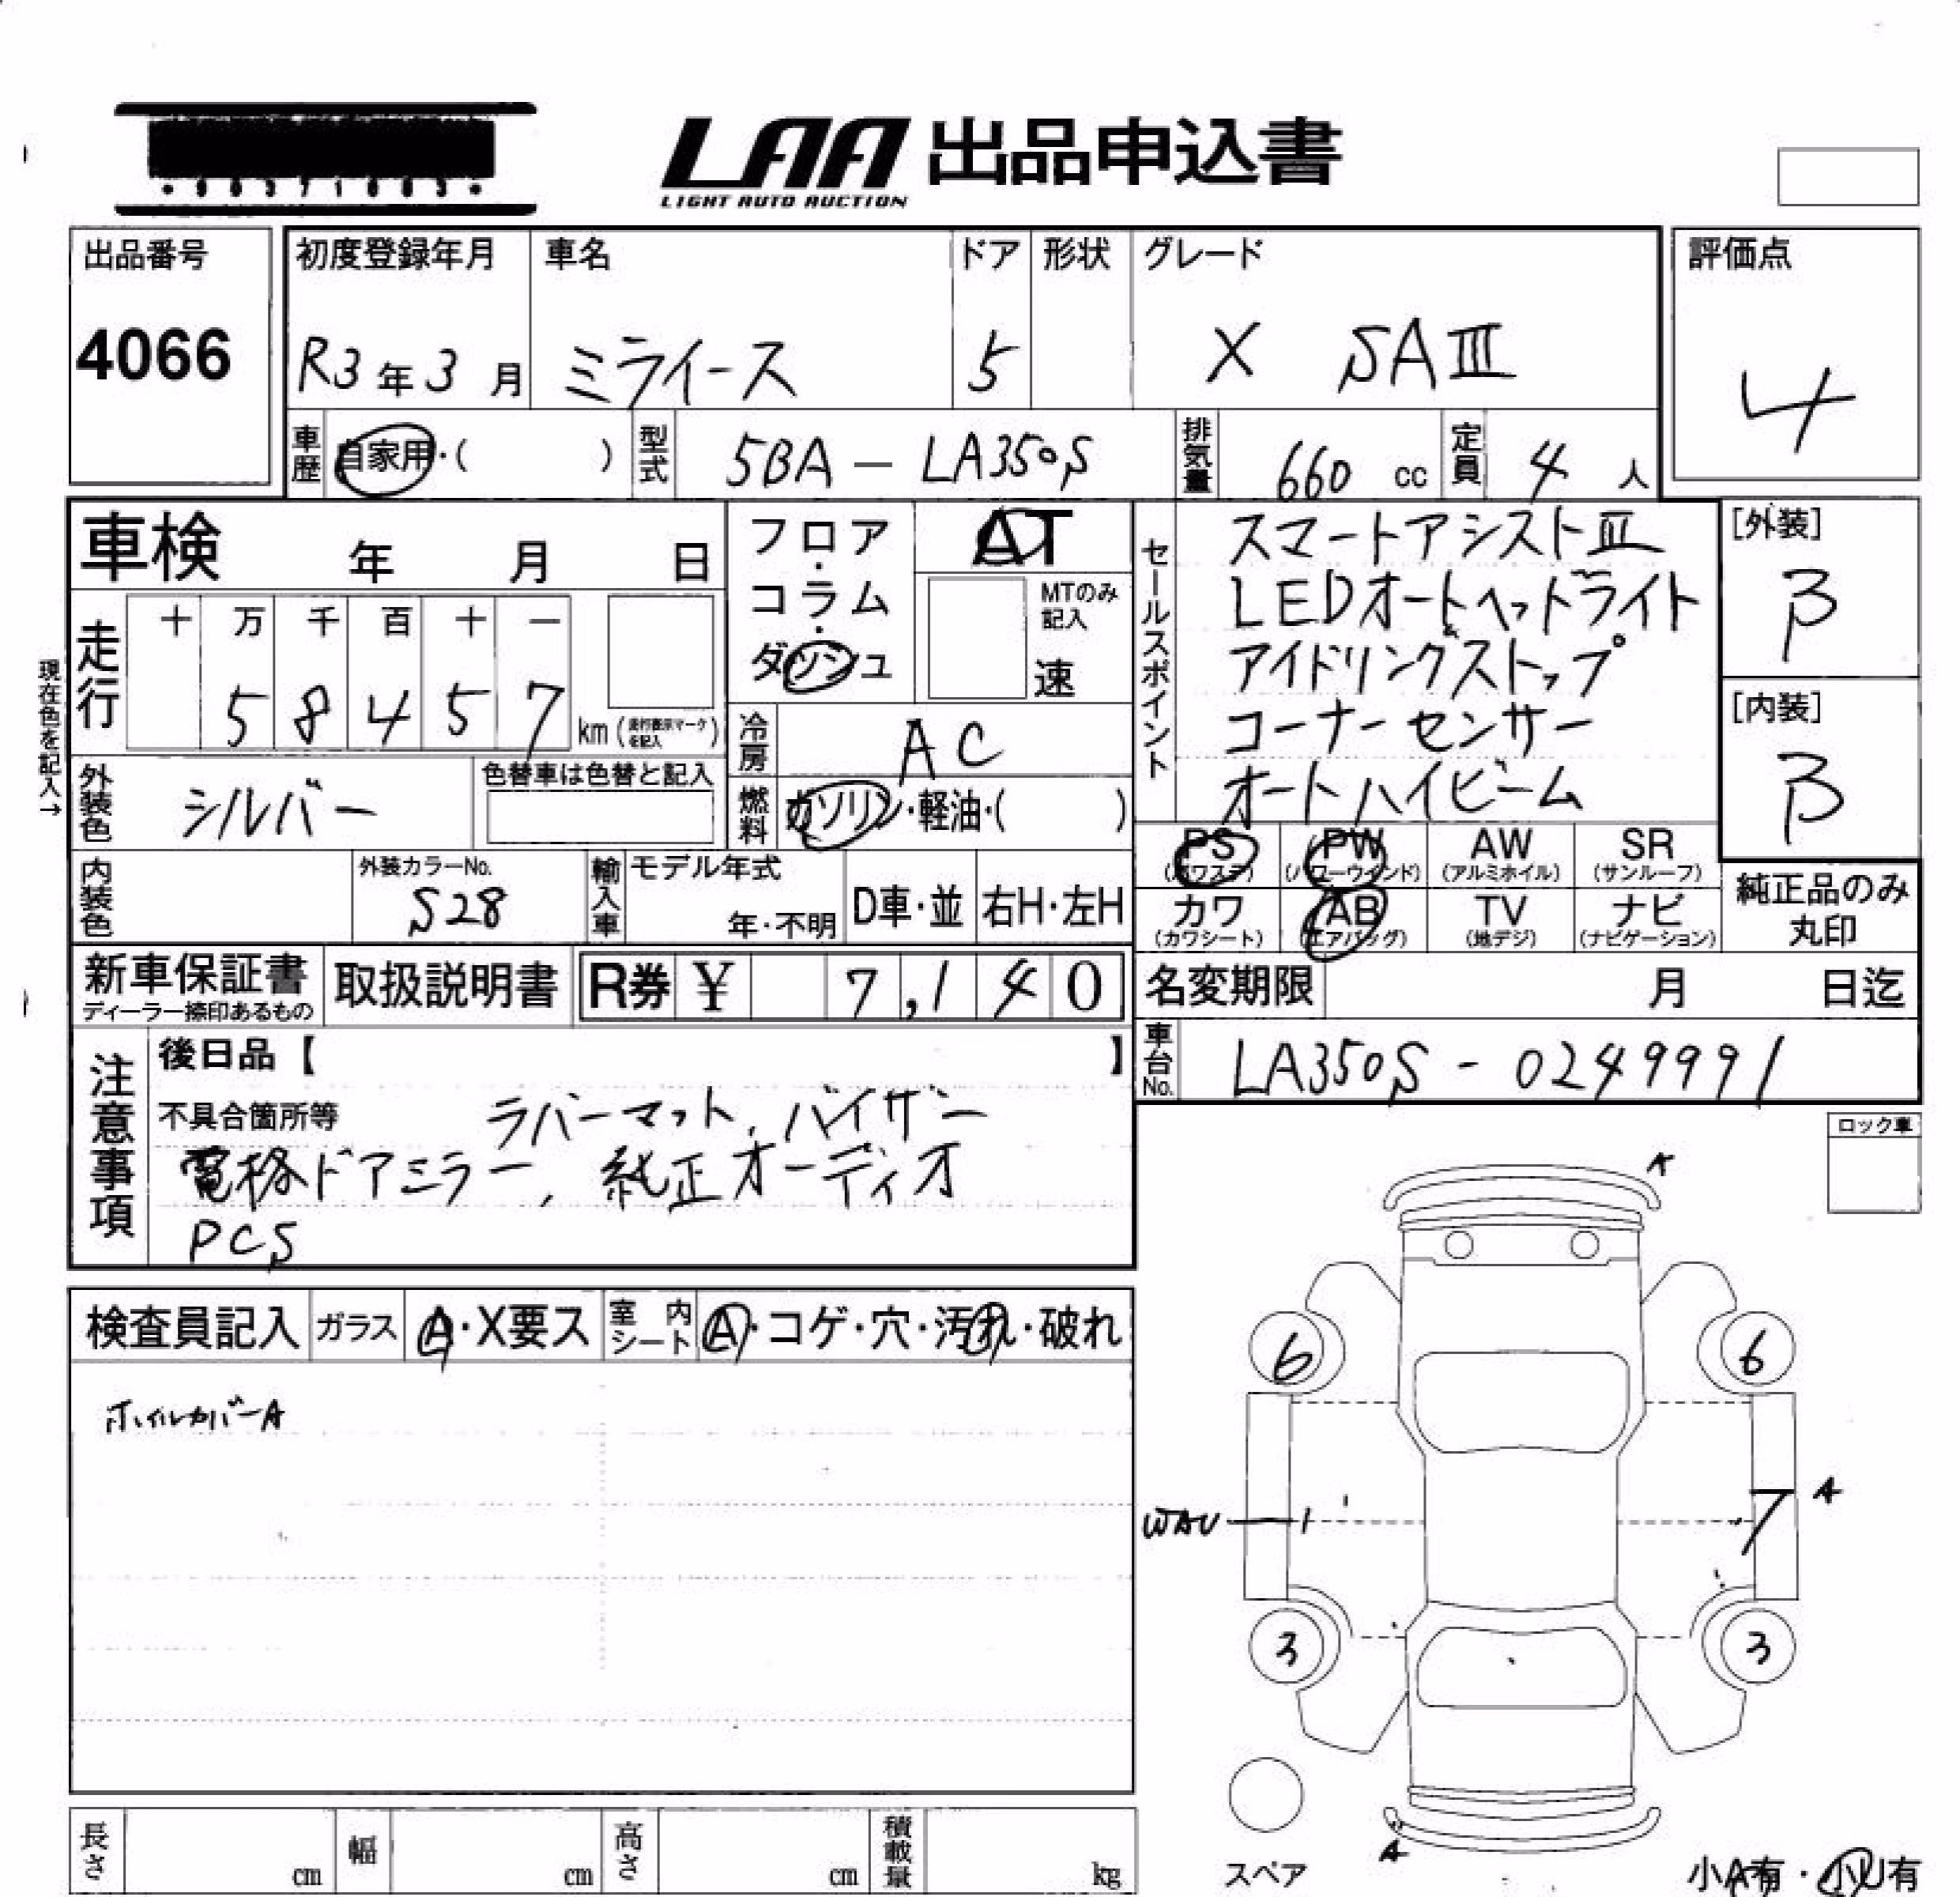 LAA 出品申込書
LIGHT AUTO AUCTION
出品番号
4066
初度登録年月
R3年3月
車名
ミライース
ドア
5
形状
グレード
X SAⅢ
評価点
4
車歴
自家用・( )
型式
5BA - LA350S
排気量
660 cc
定員
4人
車検 年 月 日
現在色を記入→
走行
十 万 千 百 十 一
5 8 4 5 7
km (走行表示マークを記入)
フロア・コラム・ダッシュ
AT
MTのみ記入
速
冷房
AC
燃料
ガソリン・軽油・( )
セールスポイント
スマートアシストⅢ
LEDオートヘッドライト
アイドリングストップ
コーナーセンサー
オートハイビーム
[外装]
B
[内装]
B
外装色
シルバー
色替車は色替と記入
内装色
外装カラーNo.
S28
輸入車
モデル年式
年・不明
D車・並
右H・左H
PS (パワステ)
PW (パワーウインド)
AW (アルミホイル)
SR (サンルーフ)
カワ (カワシート)
AB (エアバッグ)
TV (地デジ)
ナビ (ナビゲーション)
純正品のみ丸印
新車保証書
ディーラー捺印あるもの
取扱説明書
R券 ¥ 7,140
名変期限 月 日迄
車台No.
LA350S - 0249991
注意事項
後日品【 】
不具合箇所等
ラバーマット, バイザー
電格ドアミラー, 純正オーディオ
PCS
ロック車
検査員記入
ガラス
A・X要ス
室内シート
A・コゲ・穴・汚れ・破れ
ホイルカバーA
A
6
6
WAU
A
3
3
A
スペア
小A有・小U有
長さ cm
幅 cm
高さ cm
積載量 kg